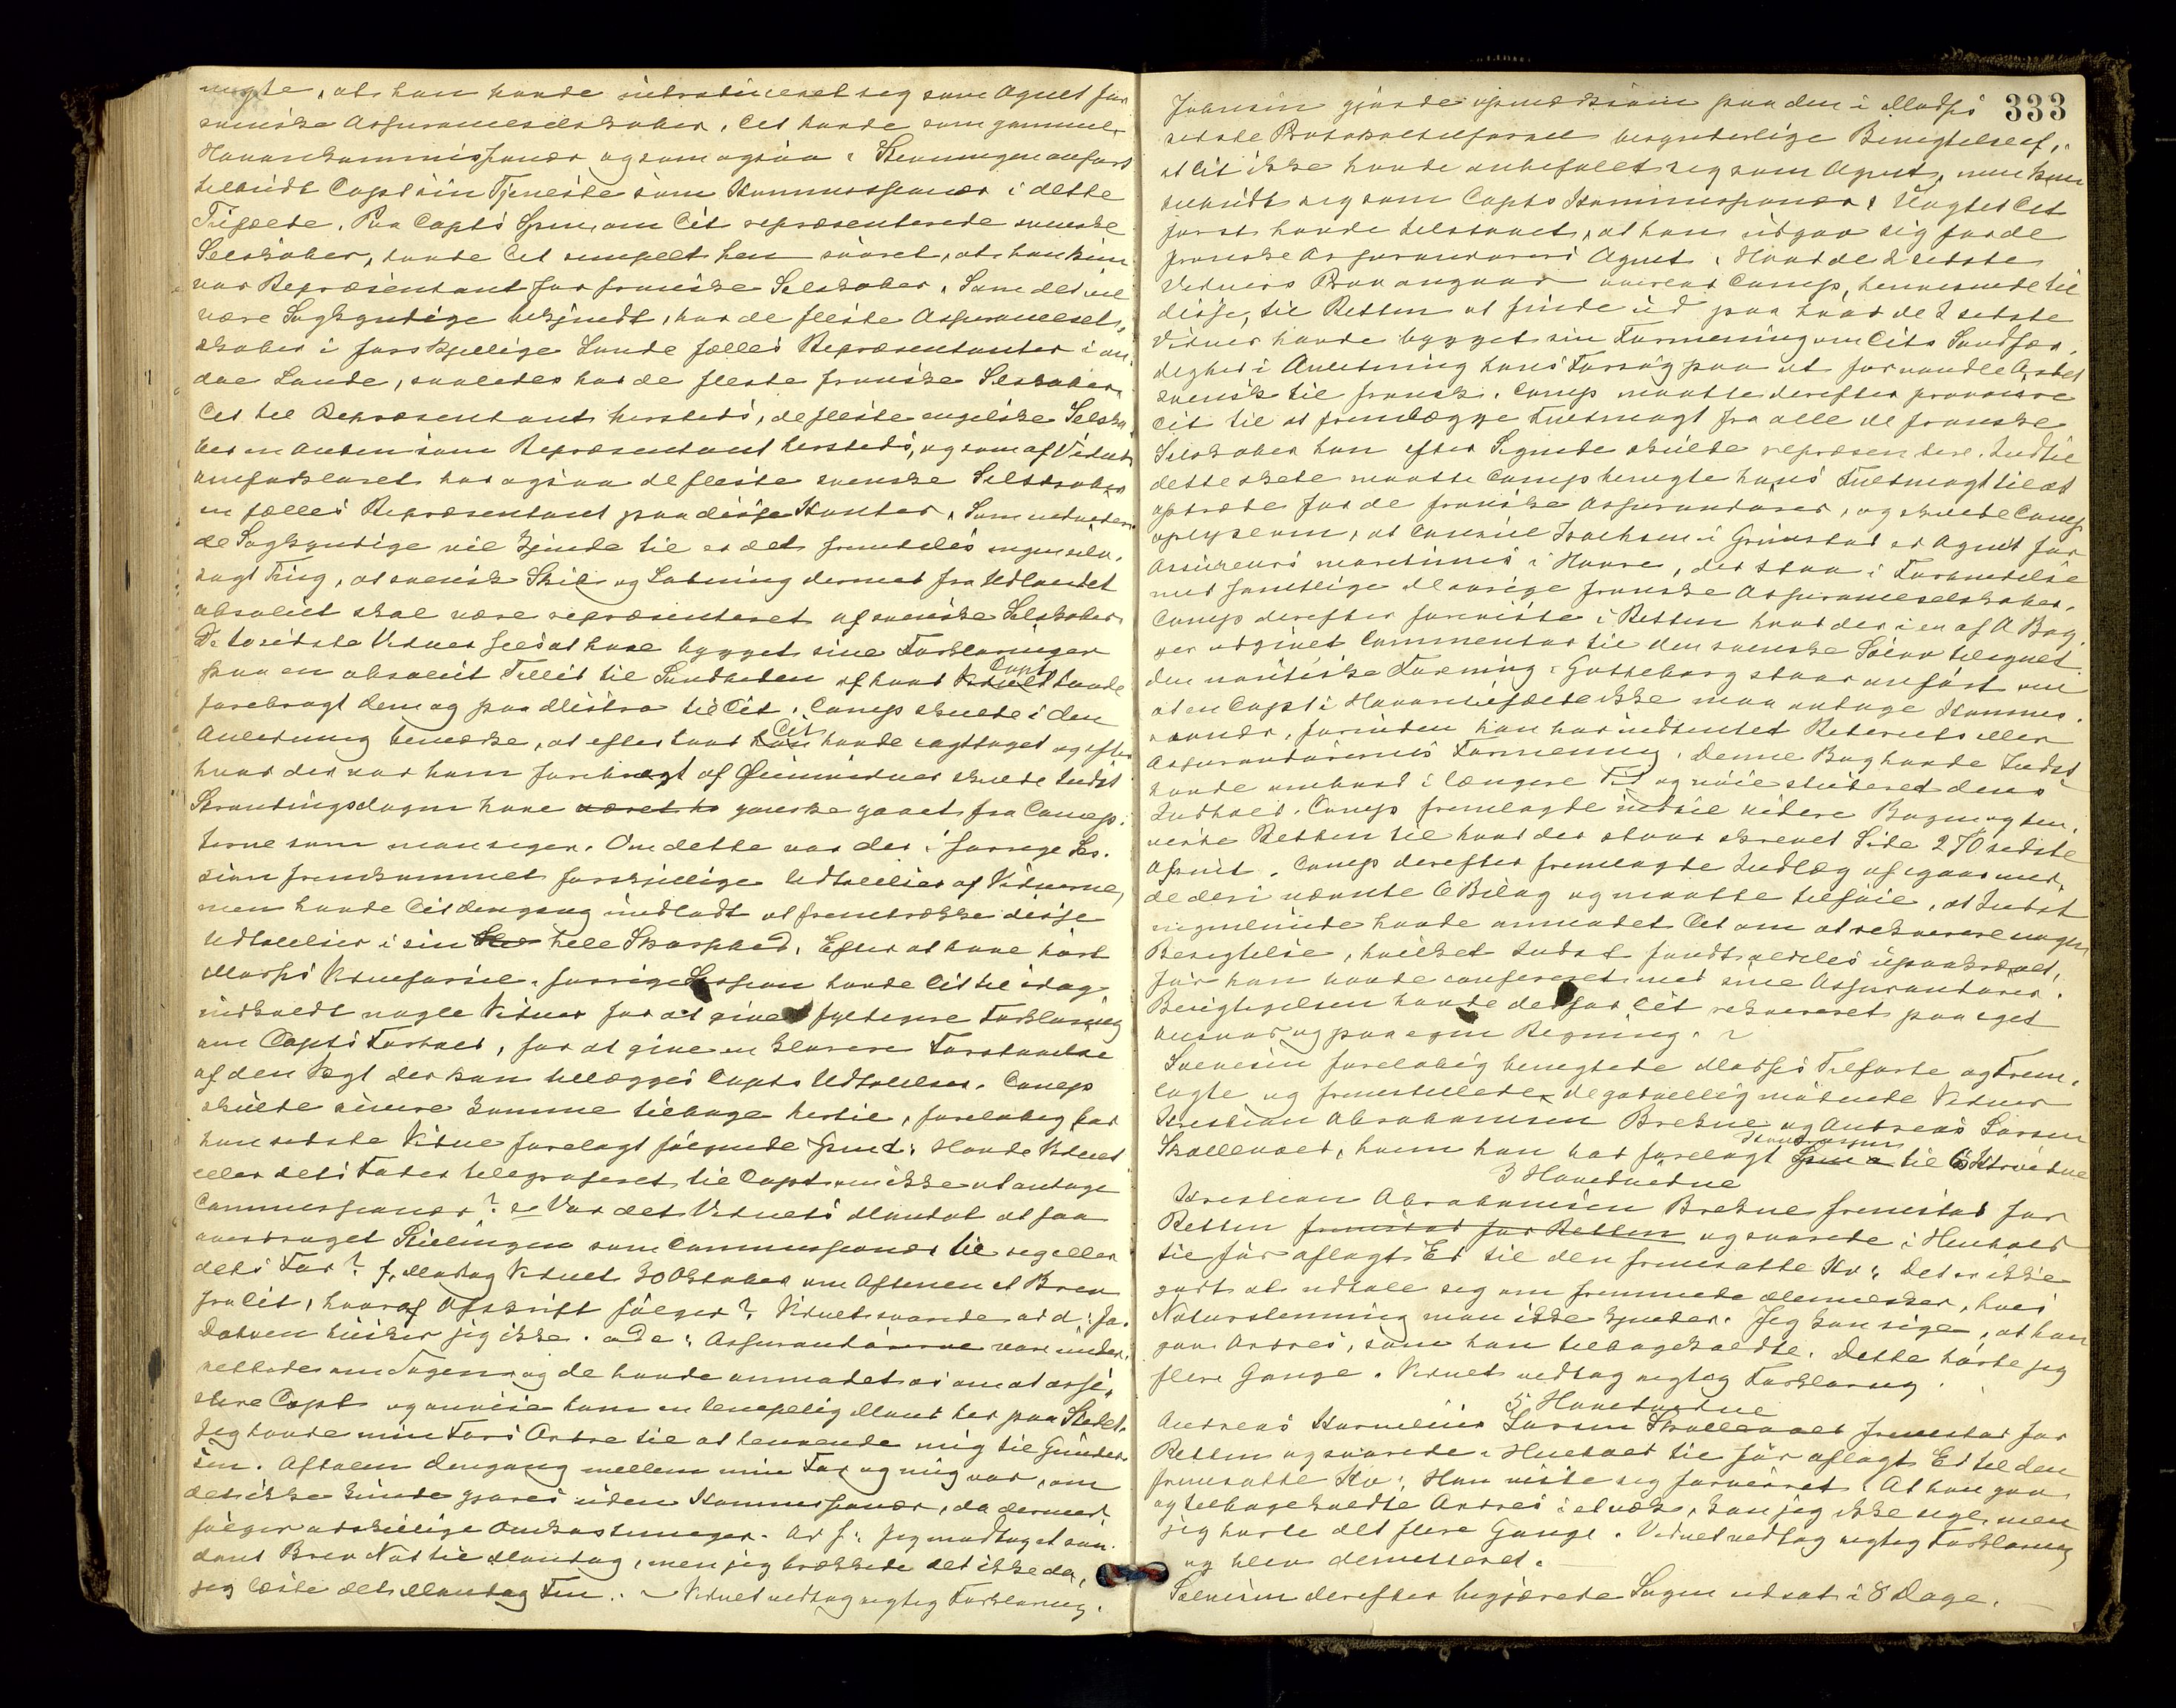 nægte, at han havde introduceret sig som Agent for
svenske Assuranceselskaber. Cit havde som gammel
Havarikommissionær og som ogsaa i Stevningen anført
tilbudt Capt sin Tjeneste som Kommissionær i dette
Tilfælde. Paa Capts Spm. om Cit repræsenterede svenske
Selskaber, havde Cit simpelt hen svaret, at han kun
var Repræsentant for franske Selskaber. Som det vil
være Sagkyndige bekjendt, har de fleste Assurancesel-
skaber i forskjellige Lande fælles Repræsentanter i an-
dre Lande, saaledes har de fleste franske Selskaber
Cit til Repræsentant hersteds, de fleste engelske Selska-
ber en Anden som Repræsentant hersteds, og som af Vidnet
omforklaret har ogsaa de fleste svenske Selskaber
en fælles Repræsentant paa disse Kanter. Som
de Sagkyndige vil kjende til er det fremdeles ingen selv-
sagt Ting, at svensk Skib og Ladning dermed fra Udlandet
absolut skal være repræsenteret af svenske Selskaber.
De to sidste Vidner sees at have bygget sine Forklaringer
paa en absolut Tillid til Sandheden af hvad Capt havde
forebragt dem og paa Mistro til Cit. Comp skulde i den
Anledning bemærke, at efter hvad Cit havde iagttaget og efter
hvad der var ham forebragt af Øienvidner skulde Indst
Strandingsdagen have været ha ganske gaaet fra Concep-
terne som man siger. Om dette var der i forrige Ses-
sion fremkommet forskjellige Udtalelser af Vidnerne,
men havde Cit dengang undladt at fremtrække disse
Udtalelser i sin hele Skarphed. Efter at have hørt
Modps Vidneførsel i forrige Session havde Cit til idag
indkaldt nogle Vidner for at give fyldigere Forklaring
om Capts Forhold, for at give en klarere Forstaaelse
af den Vægt der kan tillægges Capts Udtalelser. Comp
skulde senere komme tilbage hertil, foreløbig bad
han sidste Vidne forelagt følgende Spm d: Havde Vidnet
eller dets Fader telegraferet til Capt om ikke at antage
Commissionær? e Var det Vidnets Mandat at faa
overdraget Stillingen som Commissionær til sig eller
dets Far? f, Modtog Vidnet 30 Oktober om Aftenen et Brev
fra Cit, hvoraf Afskrift følger? Vidnet svarede ad d: Ja.
Datoen husker jeg ikke. ad e: Assurandørerne var under-
rettede om Sagen og de havde anmodet os om at assi-
stere Capt og anvise ham en lempelig Mand her paa Stedet.
Jeg havde min Fars Ordre til at henvende mig til Gunder-
sen. Aftalen dengang mellem min Far og mig var, om
det ikke kunde gjøres uden Kommissionær, da dermed
følger adskillige Omkostninger. Ad f: Jeg modtog et saa-
dant Brev Nat til Mandag, men jeg brækkede det ikke da,
jeg læste det Mandag Fm. – Vidnet vedtog rigtig Forklaring.
333
Johnsen gjorde opmærksom paa den i Modps
sidste Protokoltilførsel besynderlige Benegtelse af,
at Cit ikke havde anbefalet sig som Agent, men kun
tilbudt sig som Capts Kommissionær. Uagtet Cit
først havde tilstaaet, at han udgav sig for de
franske Assurandørers Agent. Hvad de 2 sidste
Vidners Prov angaar overlod Comp, henvisende til
disse, til Retten at finde ud paa hvad de 2 sidste
Vidner havde bygget sin Formening om Cits Sandfær-
dighed i Anledning hans Forsøg paa at forvandle Ordet
svensk til fransk. Comp maatte derefter provocere
Cit til at fremlægge Fuldmagt fra alle de franske
Selskaber han efter Sigende skulde repræsentere. Indtil
dette skede maatte Comp benegte hans Fuldmagt til at
optræde for de franske Assurandører, og skulde Comp
oplyse om, at Consul Isachsen i Grimstad er Agent for
Assureurs maritimes i Havre, der staa i Forbindelse
med samtlige øvrige franske Assuranceselskaber.
Comp derefter foreviste i Retten hvad der i en af A Bag-
ger udgivet Commentar til den svenske Sølov tilegnet
den nautiske Forening i Gøtteborg staar anført om
at en Capt i Havaritilfælde ikke maa antage Kommis-
sionær, forinden han har indhentet Rederiets eller
Assurandørernes Formening. Denne Bog havde Indst
havde ombord i længere Tid og nøie studeret dens
Indhold. Comp fremlagte indtil videre Bogen og hen-
viste Retten til hvad der staar skrevet Side 270 sidste
Afsnit. Comp derefter fremlagte Indlæg af igaar med
de deri nævnte 6 Bilag og maatte tilføie, at Indst
ingenlunde havde anmodet Cit om at rekvirere nogen
Besigtelse, hvilket Indst fandt aldeles upaakrævet,
før han havde confereret med sine Assurandører.
Besigtigelsen havde derfor Cit rekvireret paa eget
Ansvar og paa egen Regning. –
Svensen foreløbig benegtede Modps Tilførte og Frem-
lagte og fremstillede de godvillig mødende Vidner
Kristian Abrahamsen Brekne og Andreas Larsen
Skallevold, hvem han bad forelagt til Kvidne
3 Hovedvidne
Kristian Abrahamsen Brekne fremstod for
Retten fremstod for Retten og svarede i Henhold
til før aflagt Ed til den fremsatte Kv: Det er ikke
godt at udtale sig om fremmede Mennesker, hvis
Naturstemning man ikke kjender. Jeg kan sige, at han
gav Ordres, som han tilbagekaldte. Dette hørte jeg
flere Gange. Vidnet vedtog rigtig Forklaring.
5 Hovedvidne
Andreas Kornelius Larsen Skallevold fremstod for
Retten og svarede i Henhold til før aflagt Ed til den
fremsatte Kv: Han viste sig forvirret. At han gav
og tilbagekaldte Ordres i et væk, kan jeg ikke sige, men
jeg hørte det flere Gange. Vidnet vedtog rigtig Forklaring
og blev demitteret.
Svensen derefter begjærede Sagen udsat i 8 Dage.